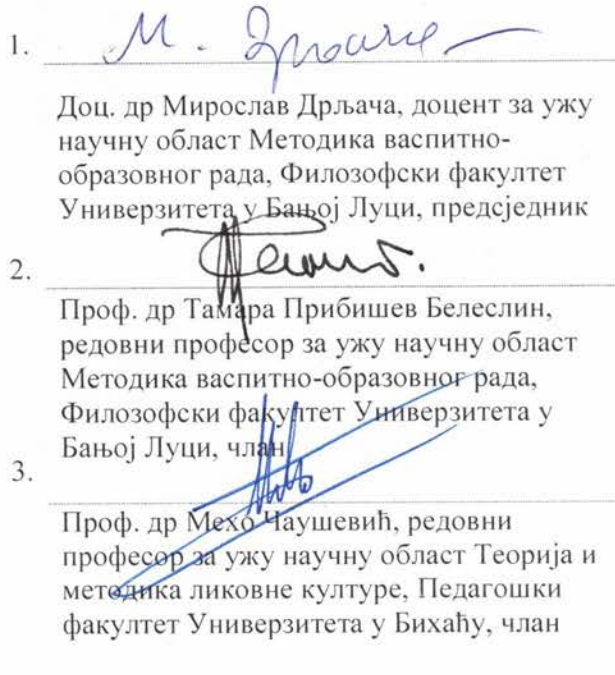 1.
Доц. др Мирослав Дрљача, доцент за ужу
научну област Методика васпитно-
образовног рада, Филозофски факултет
Универзитета у Бањој Луци, предсједник
2.
Проф. др Тамара Прибишев Белеслин,
редовни професор за ужу научну област
Методика васпитно-образовног рада,
Филозофски факултет Универзитета у
Бањој Луци, члан
3.
Проф. др Мехо Чаушевић, редовни
професор за ужу научну област Теорија и
методика ликовне културе, Педагошки
факултет Универзитета у Бихаћу, члан